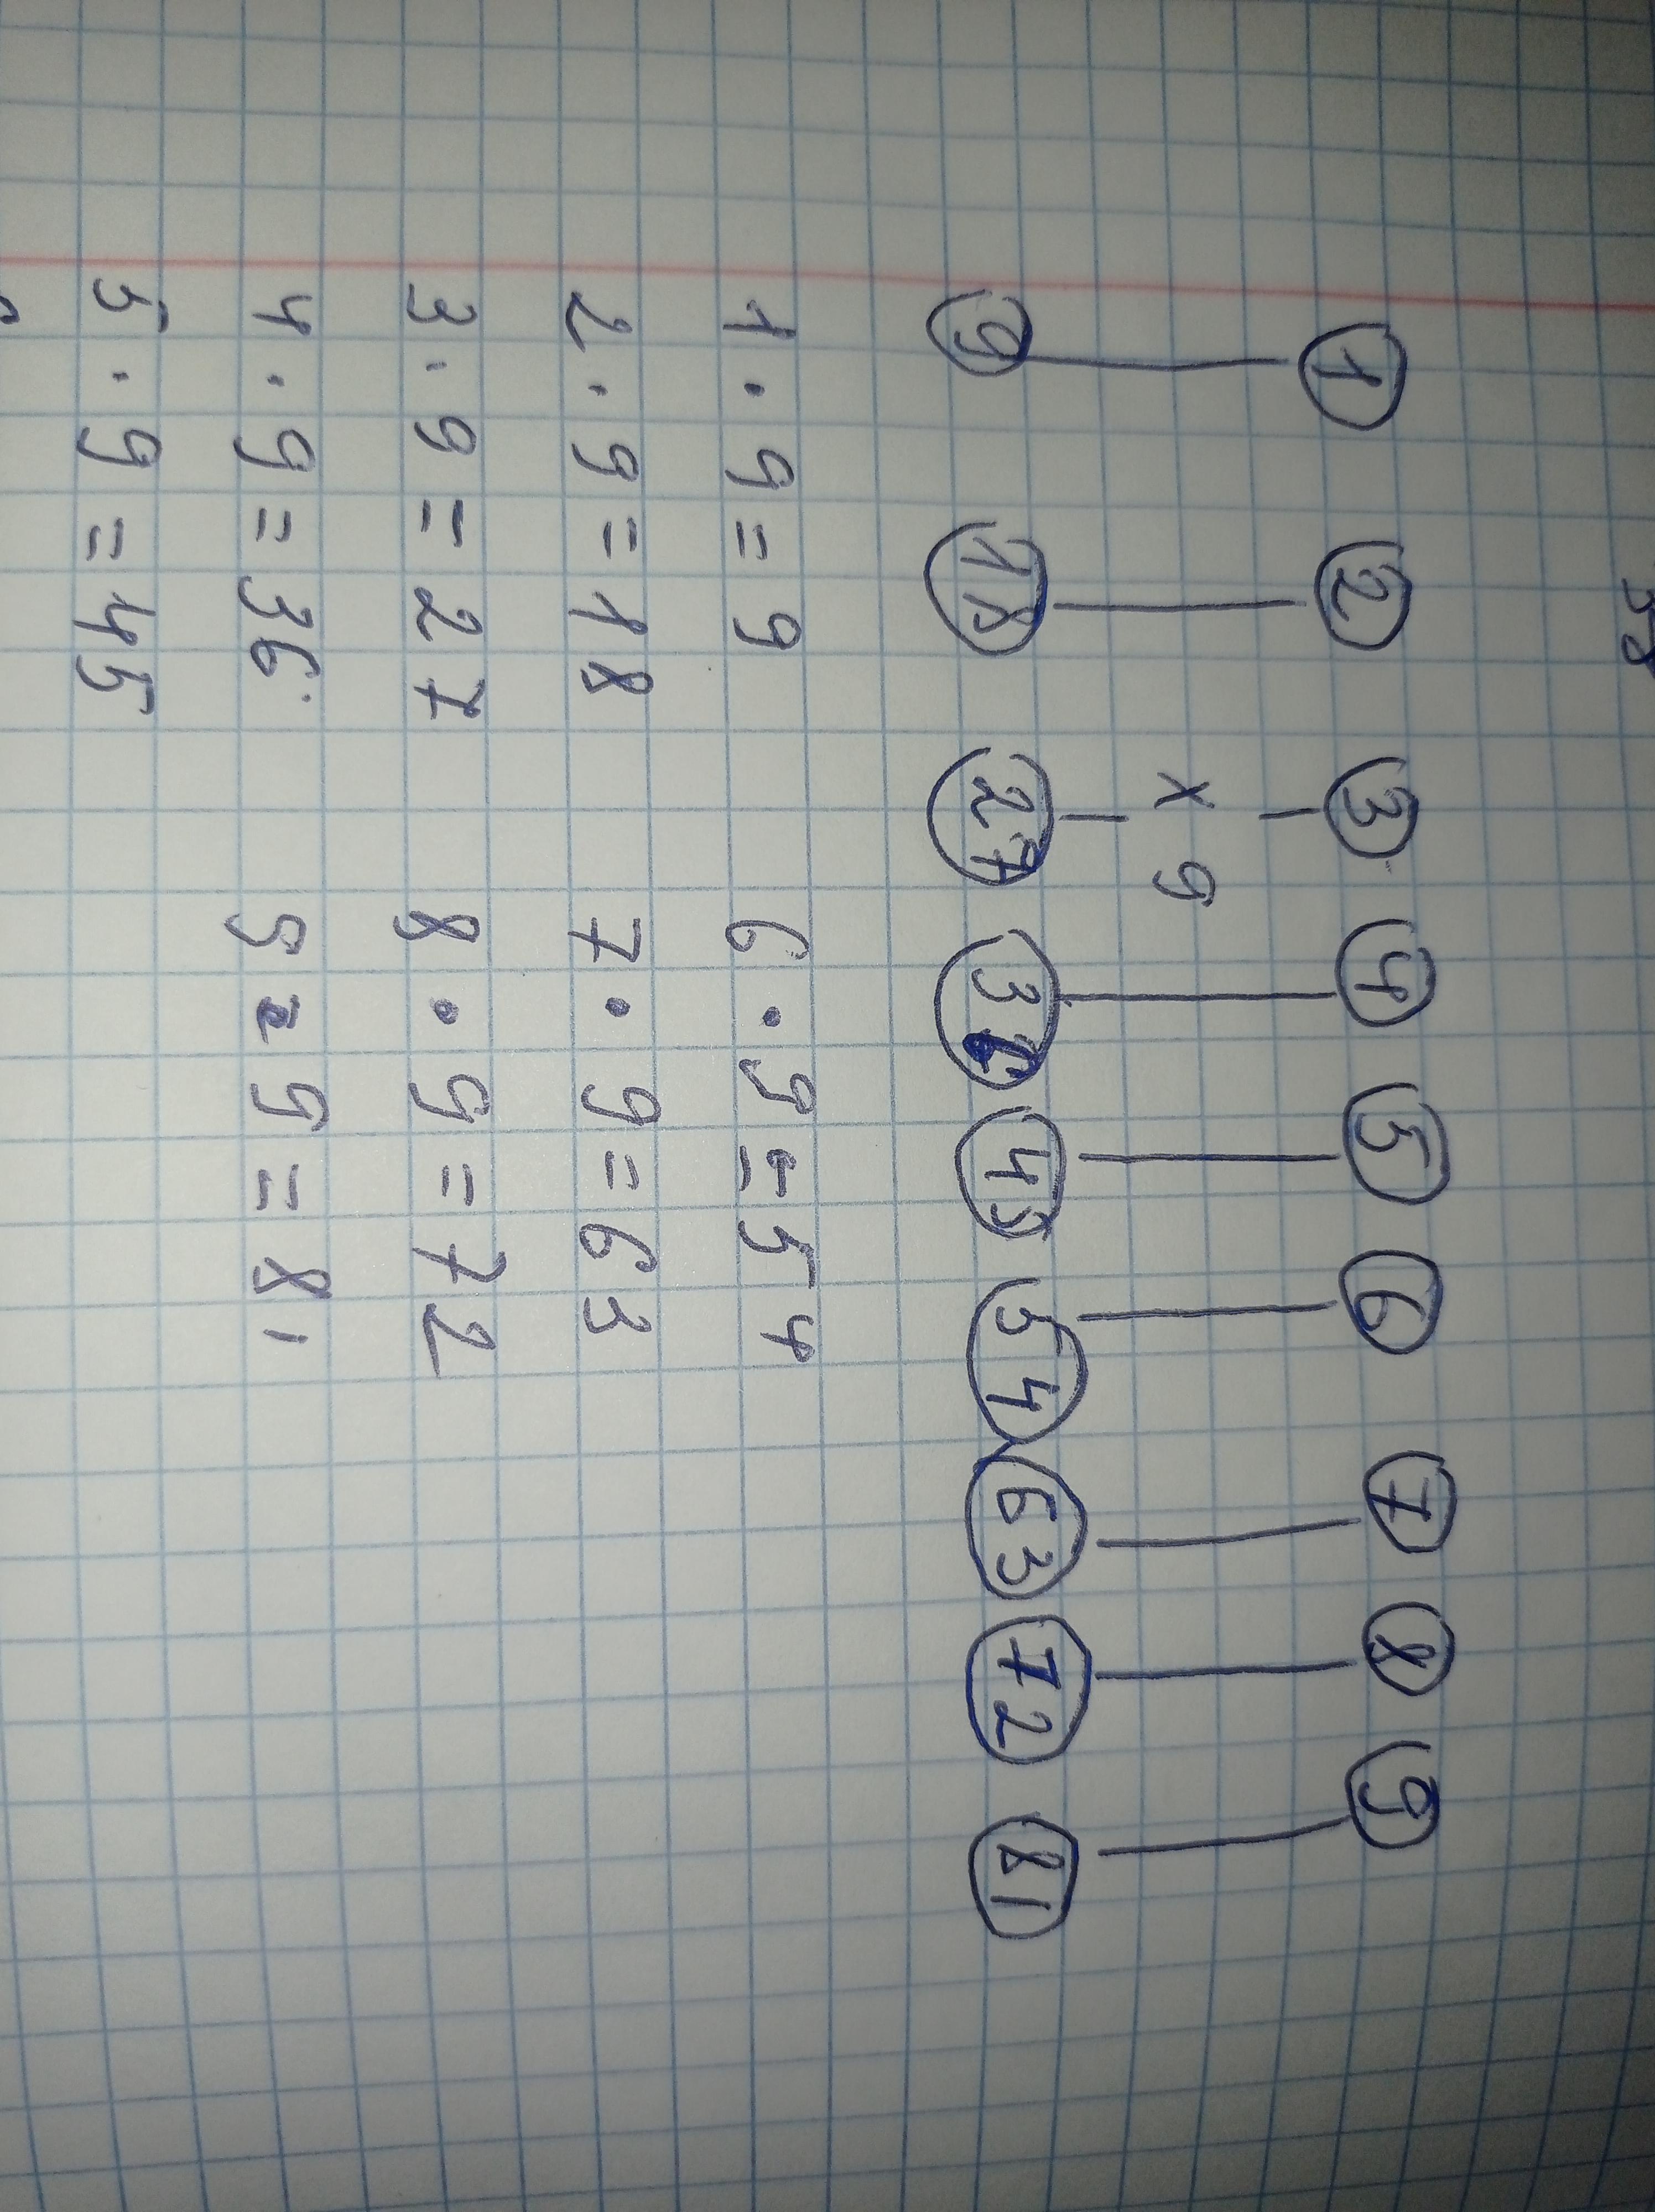 38
1 2 3 4 5 6 7 8 9
x 9
9 18 27 36 45 54 63 72 81
1 · 9 = 9 6 · 9 = 54
2 · 9 = 18 7 · 9 = 63
3 · 9 = 27 8 · 9 = 72
4 · 9 = 36 9 · 9 = 81
5 · 9 = 45